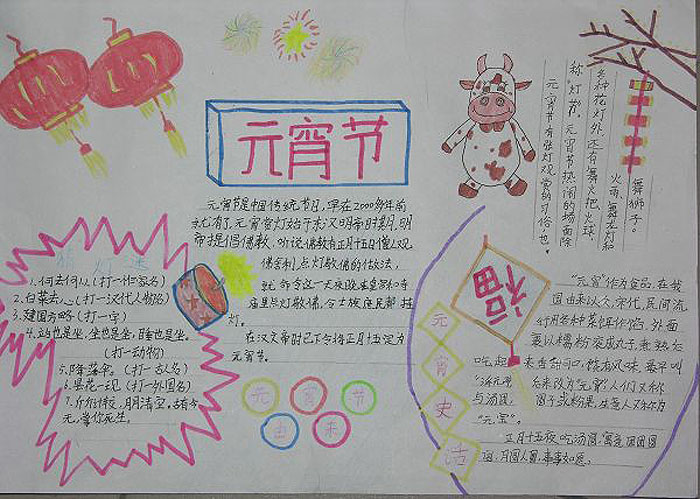 元宵节
元宵节是中国传统节日,早在2000多年前
就有了,元宵赏灯始于东汉明帝时期,明
帝提倡佛教,听说佛教有正月十五日僧人观
佛舍利,点灯敬佛的做法,
就命令这一天夜晚在皇宫和寺
庙里点灯敬佛,令士族庶民都挂
灯。
在汉文帝时已下令将正月十五定为
元宵节。
元宵节
由来
猜灯谜
1.何去何从(打一作家名)
2.白菜去心(打一汉代人物名)
3.建国方略(打一字)
4.站也是坐,坐也是坐,睡也是坐。
(打一动物)
5.降落伞。(打一古人名)
6.昙花一现(打一外国名)
7.斤斤计较,月月清空,古有今
无,掌你死生。
元宵节有张灯观
赏的习俗,也
称“灯节”。元宵节热闹的场面除
各种花灯外,还有舞火把、火球、
火雨,舞龙灯和
舞狮子。
福
“元宵”作为食品,在我
国由来以久,宋代,民间流
行
吃起来香甜可口,饶有风味。
与汤圆
“元宝”。
正月十五夜吃汤圆,寓意团团圆
圆,月圆人圆,事事如愿。
元宵史话